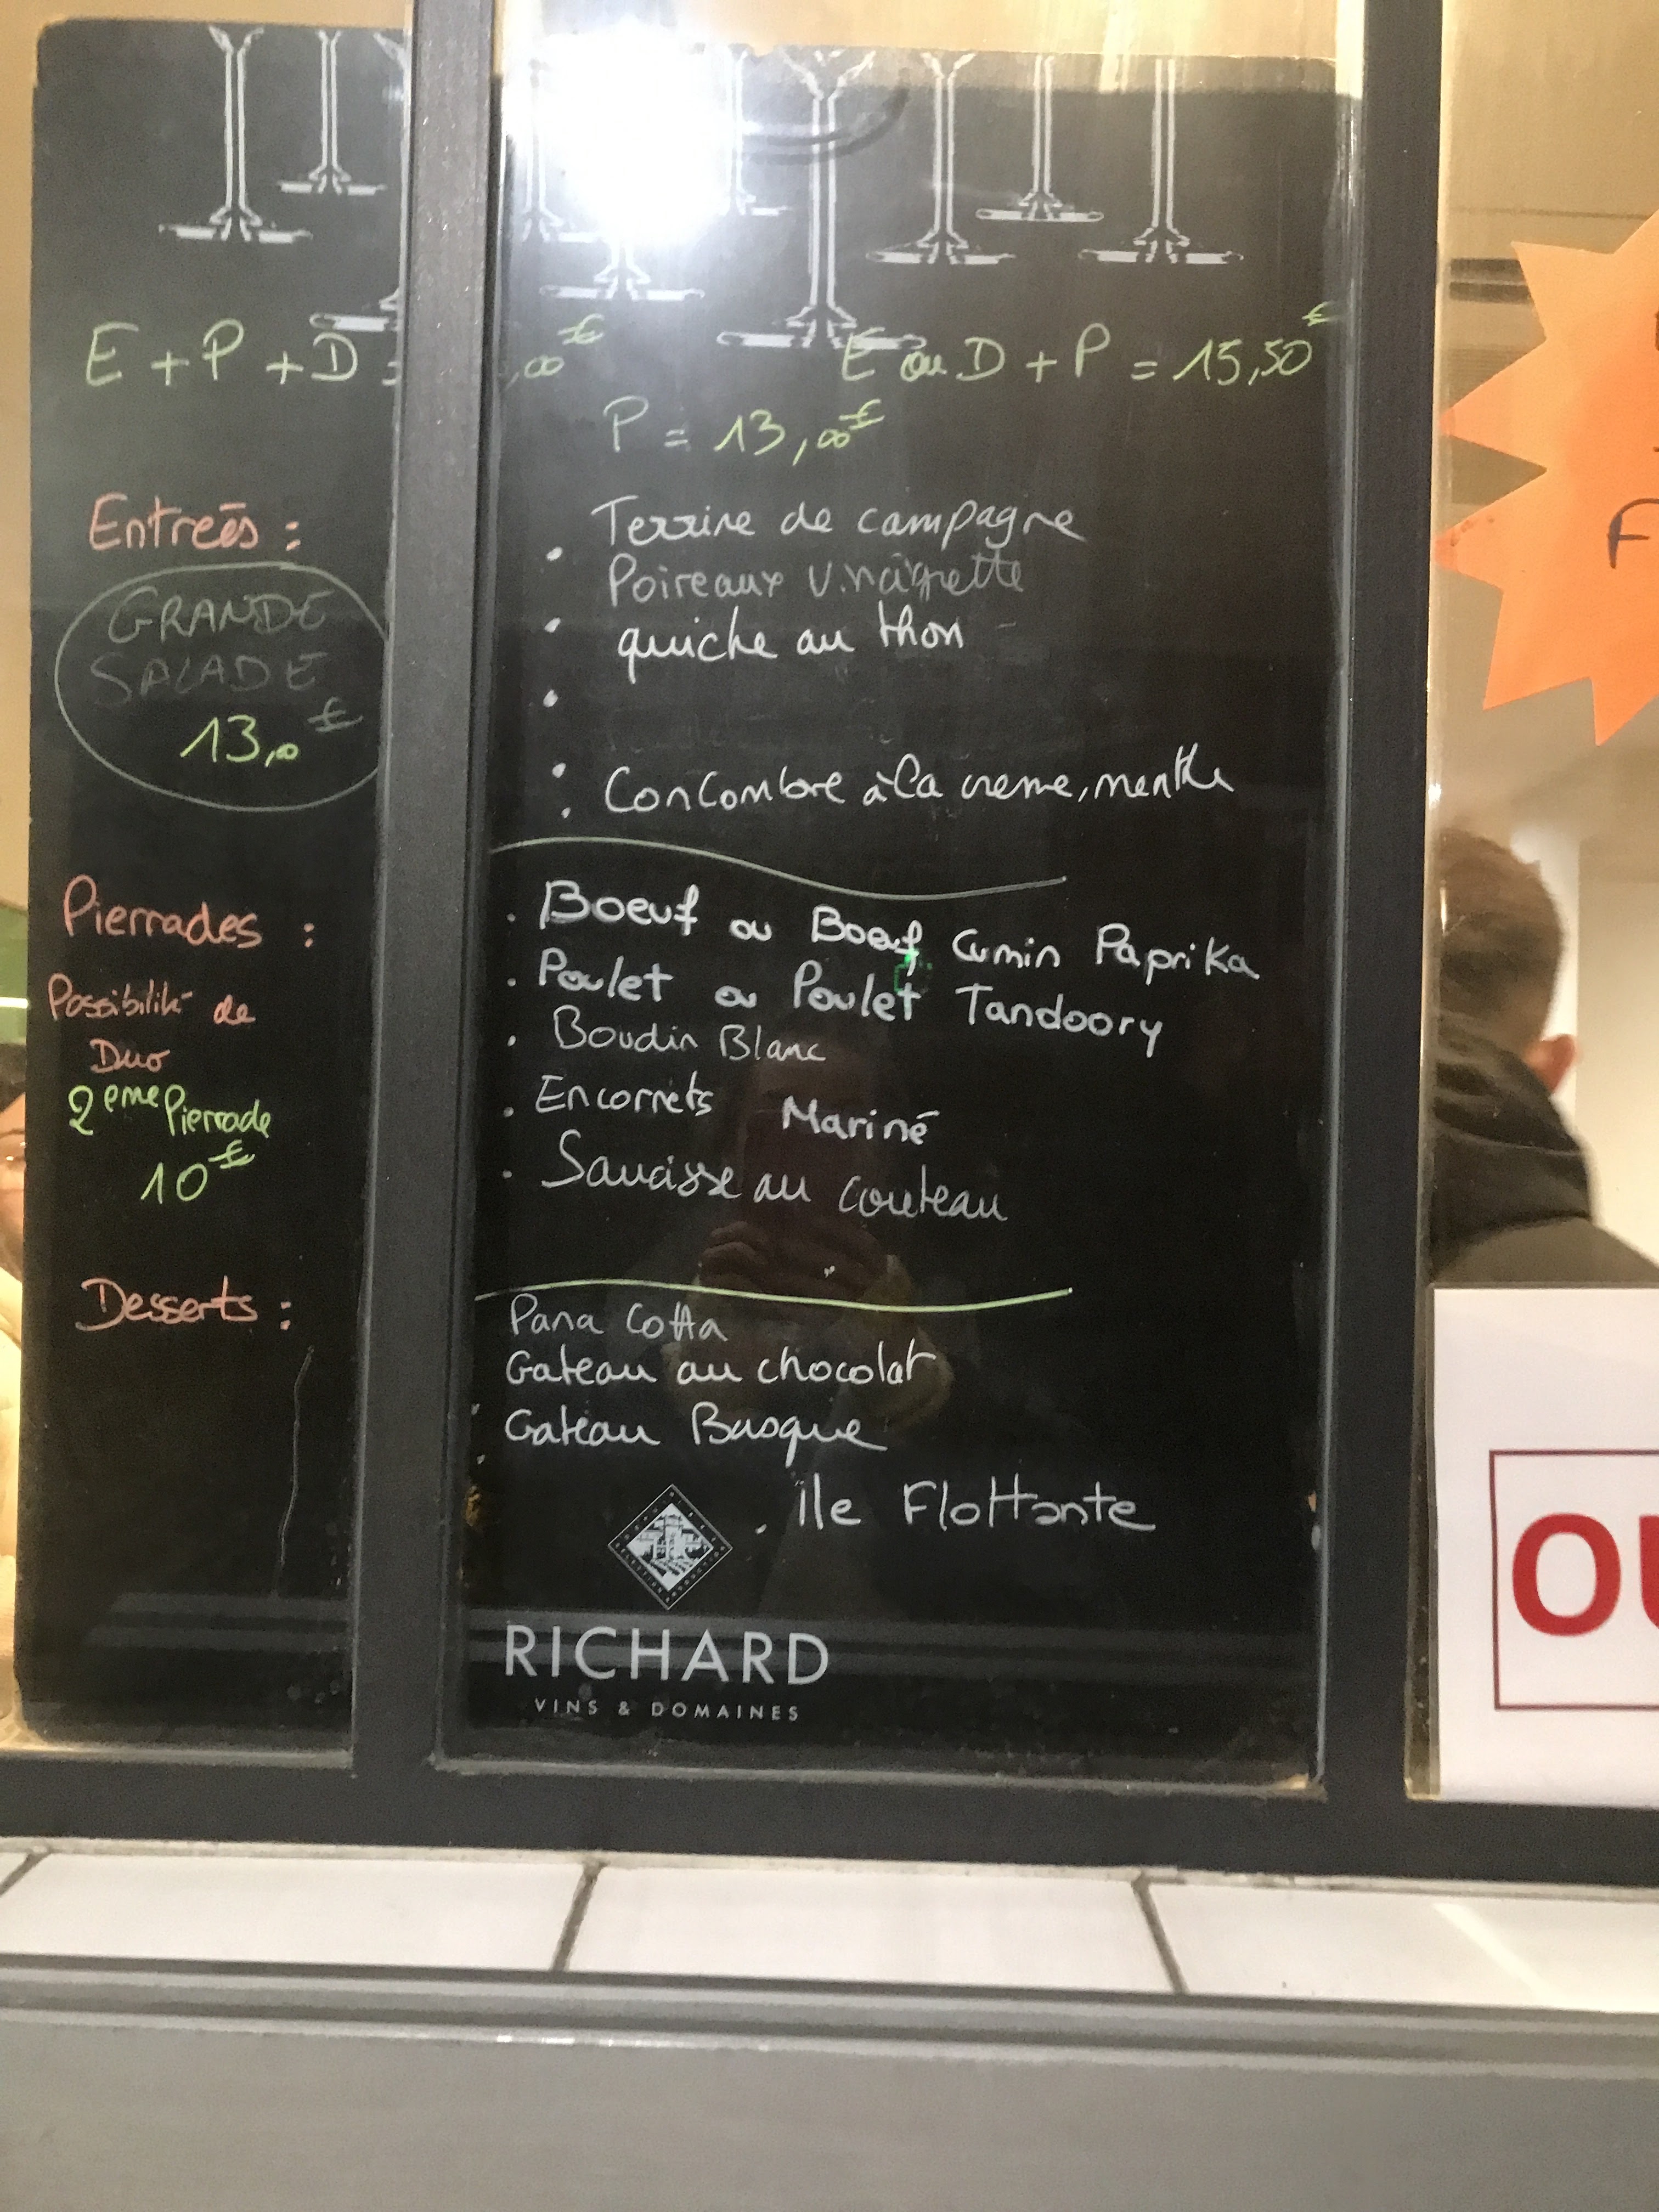 E + P + D = ,00€
E ou D + P = 15,50€
P = 13,00€
Entreés :
GRANDE
SALADE
13,00€
Terrine de campagne
Poireaux Vinaigrette
quiche au thon
Concombre à la creme, menthe
Pierrades :
Possibilité de
Duo
2eme Pierrade
10€
. Boeuf ou Boeuf Cumin Paprika
. Poulet ou Poulet Tandoory
. Boudin Blanc
. Encornets Mariné
. Saucisse au couteau
Desserts :
Pana Cotta
Gateau au chocolat
Gateau Basque
. île Flottante
RICHARD
VINS & DOMAINES
OU